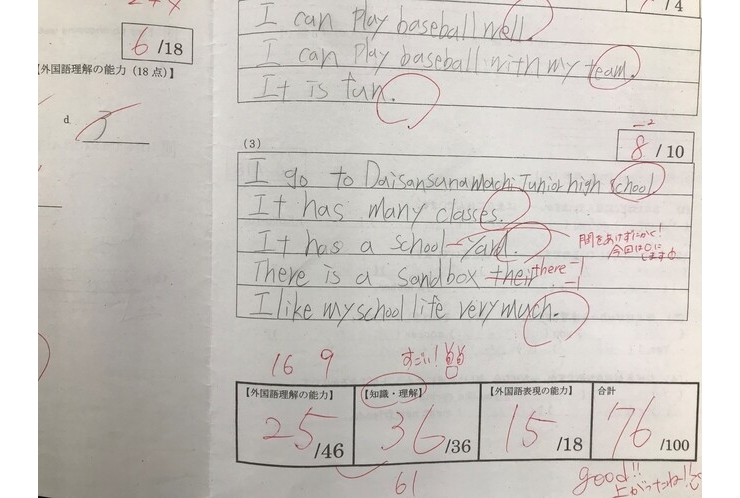 /4
6/18
I can play baseball well.
【外国語理解の能力(18点)】
I can play baseball with my team.
It is fun.
d.
(3)
-2
8/10
I go to Daisansunamachi Junior high school
It has many classes.
It has a school yard.
間をあけずにかく!
今回は○に
します
There is a sandbox their there -1
-1
I like my school life very much.
16 9
すごい!!
【外国語理解の能力】
25/46
【知識・理解】
36/36
【外国語表現の能力】
15/18
合計
76/100
61
good!!
上がったね!!